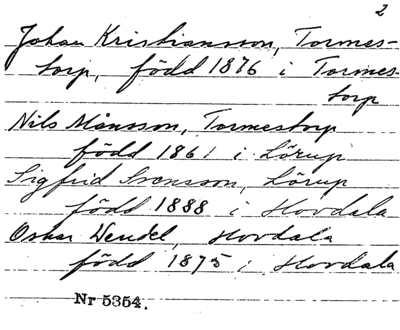 2
Johan Kristiansson, Tormes-
torp, född 1876 i Tormes-
torp
Nils Månsson, Tormestorp
född 1861 i Lörup
Sigfrid Svensson, Lörup
född 1888 i Hovdala
Oskar Wendel, Hovdala
född 1875 i Hovdala
Nr 5354.